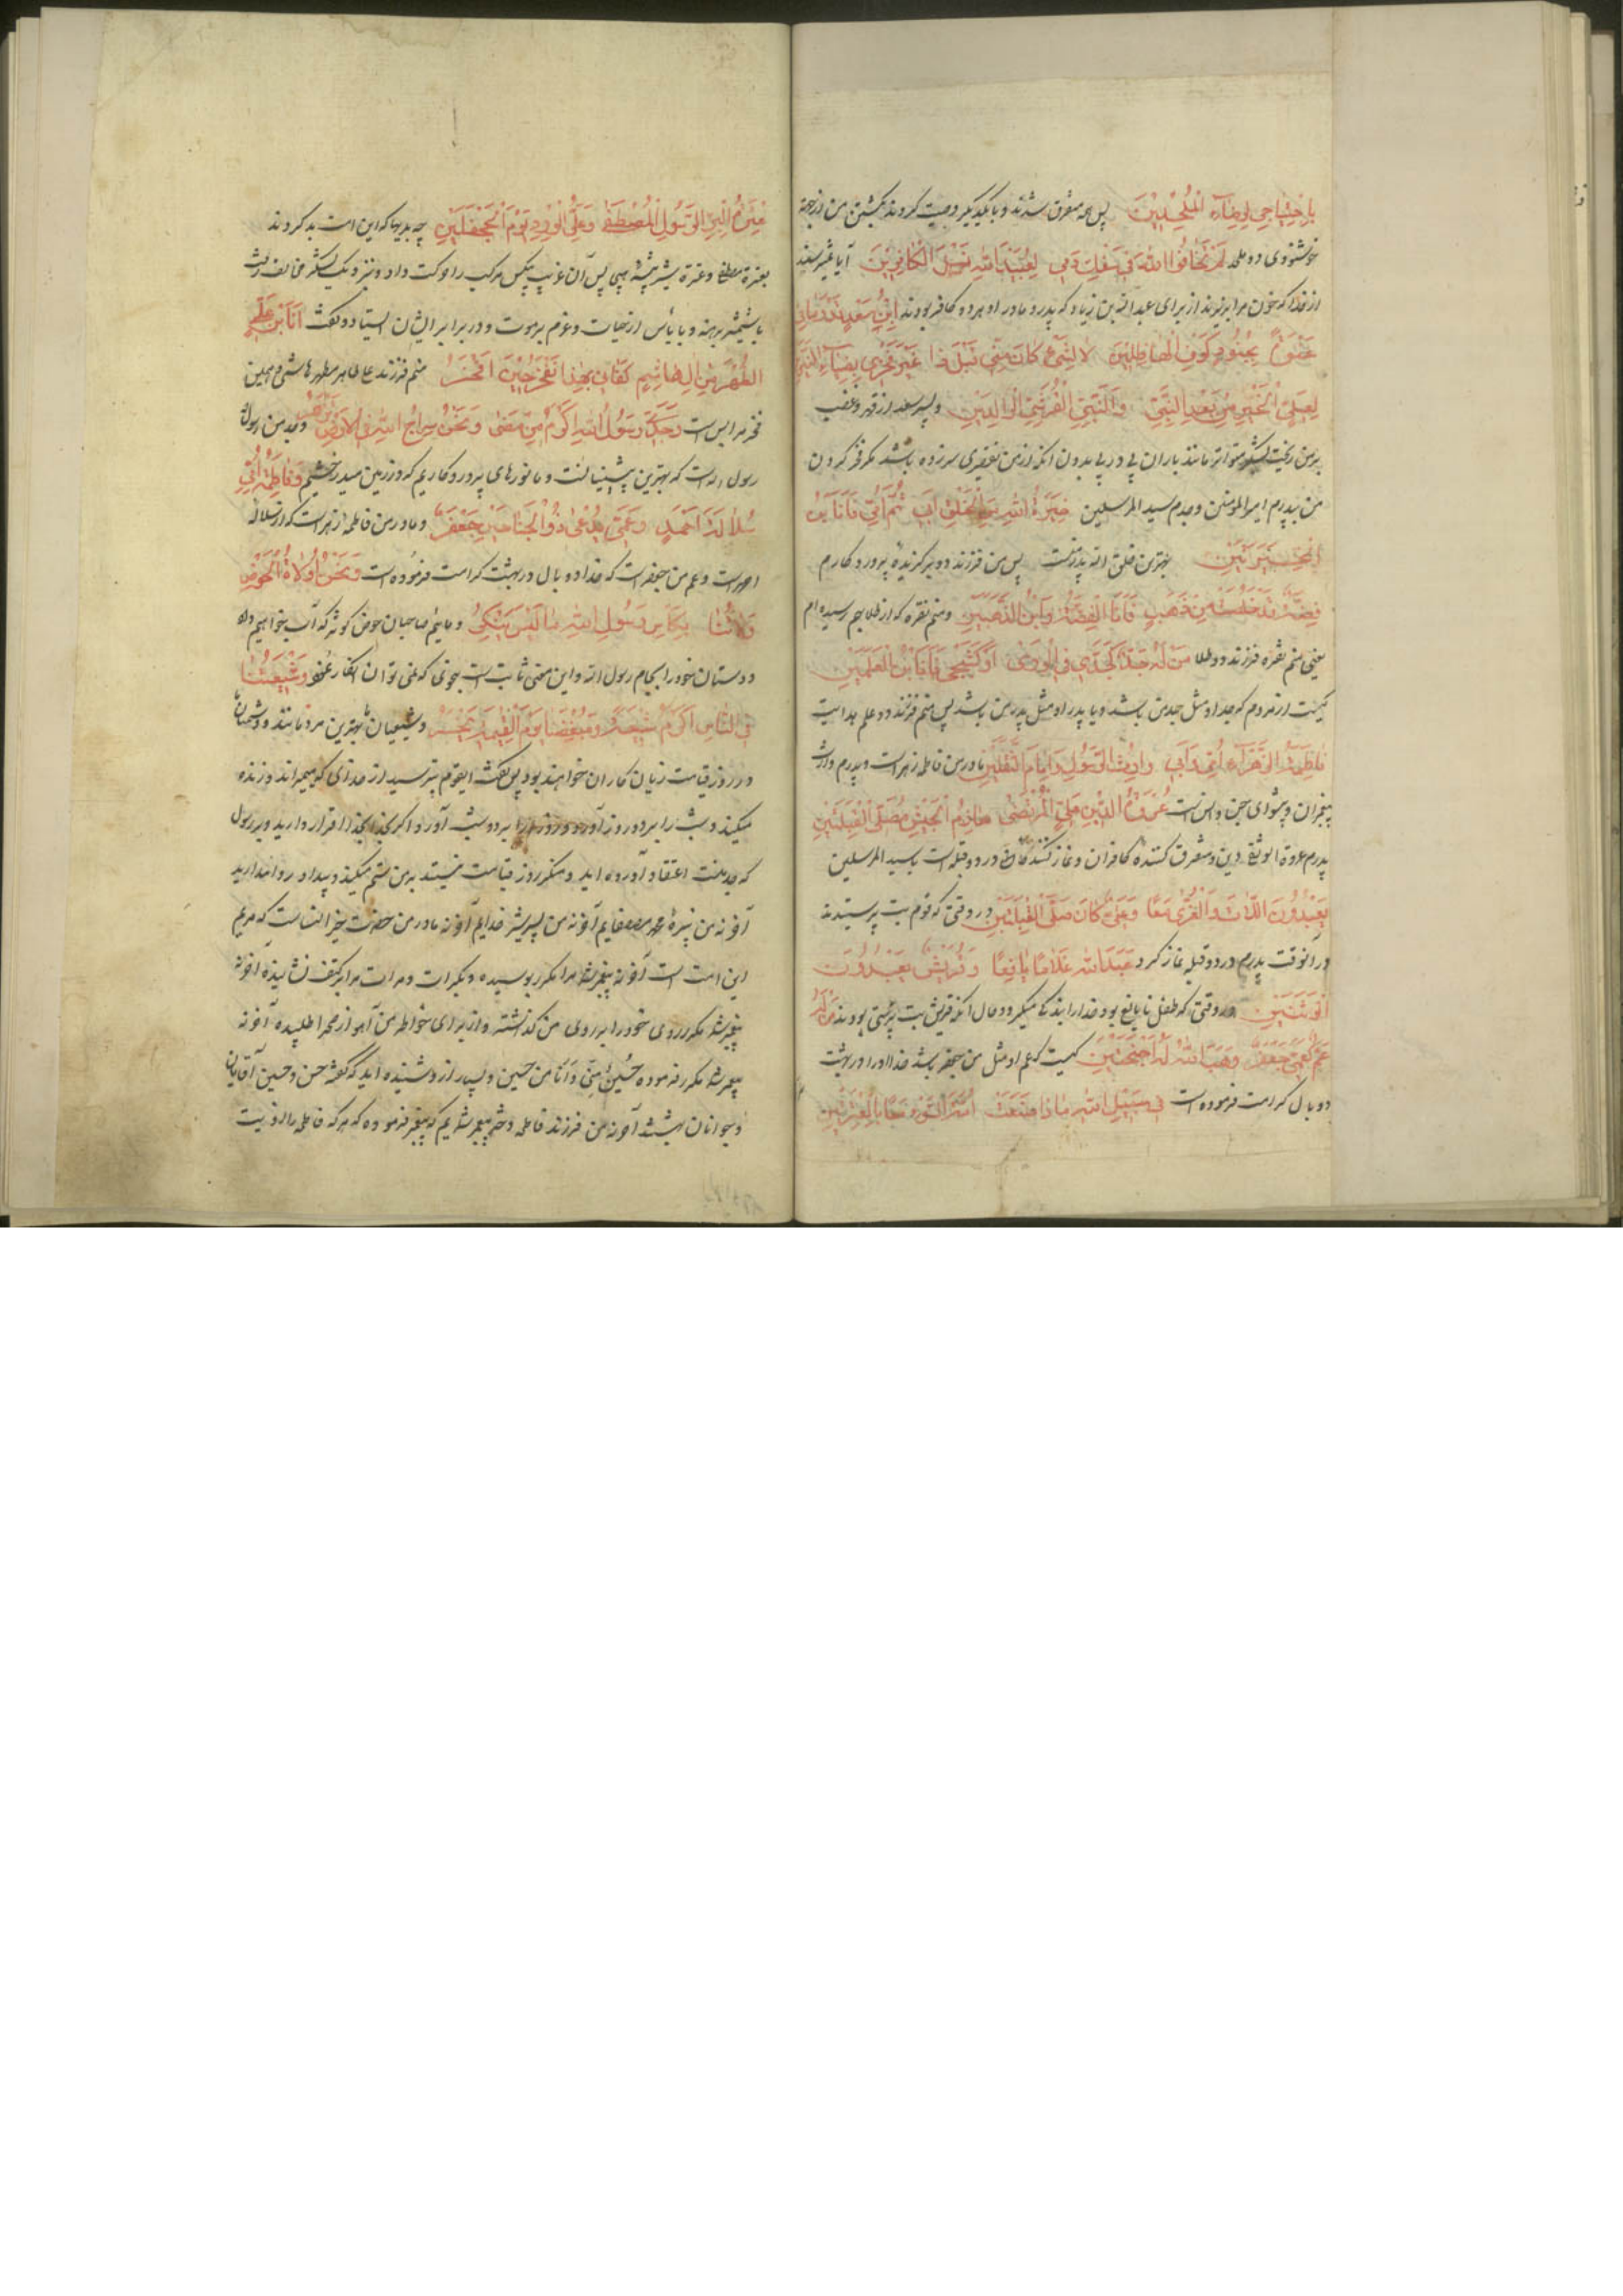 باجتیاحی لرضاء الملحدین پس همه متفرق شدند و با یکدیگر وصیت کردند بکشتن من از جهة
خوشنودی دو ملحد لم یخافوا الله فی سفک دمی لعبید الله نسل الکافرین آیا نمیترسید
از خدا که خون مرا بریزند از برای عبدالله بن زیاد که پدر و مادر او هر دو کافر بودند ابن سعد قد رمانی
عنوة بجنود کوکوف الهاطلین لا لشیء کان منی قبل ذا غیر فخری بضیاء
لعلی الخیر من بعد النبی والنبی القرشی الوالدین و پسر سعد از قهر و غضب
بر من ریخت لشکر متواتر مانند باران پی در پی بدون آنکه از من تقصیری سرزده باشد مگر فخر کردن
من بپدرم امیرالمؤمنین و جدم سید المرسلین خیرة الله من الخلق ابی ثم امی فانا بن
الخیرتین بهترین خلق الله پدر منست پس من فرزند دو برگزیده پروردگارم
فضة قد خلصت من ذهب فانا الفضة وابن الذهبین و منم نقره که از طلا بهم رسیده ام
یعنی منم نقره فرزند دو طلا من له جد کجدی فی الوری او کشیخی فانا بن العلمین
کیست از مردم که جد او مثل جد من باشد و یا پدر او مثل پدر من باشد پس منم فرزند دو علم هدایت
فاطمة الزهراء امی وابی وارث الرسول وامام الثقلین مادر من فاطمه زهراست و پدرم وارث
پیغمبران و پیشوای جن و انس است عروة الدین علی المرتضی هازم الجیش مصلی القبلتین
پدرم عروة الوثقی دین و متفرق کننده کافران و نماز کننده در دو قبله است با سید المرسلین
یعبدون اللات والعزی معا وعلی کان صلی القبلتین در وقتی که قوم بت پرستیدند
در آنوقت پدرم در دو قبله نماز کرد عبد الله غلاما یافعا وقریش یعبدون
الوثنین در وقتی که طفل نابالغ بود خدا را بندگی میکرد و حال آنکه قریش بت پرستی بودند من له
عم کعمی جعفر وهب الله له اجنحتین کیست که عم او مثل من جعفر باشد خدا او را در بهشت
دو بال کرامت فرموده است فی سبیل الله ماذا صنعت امة السوء معا بالعترتین
عترة البر الرسول المصطفی وعلی الورد یوم الجحفلین چه بدیها که این امت بد کردند
بعترة مصطفی و عترة شیر بیشه پس آن غریب بیکس مرکب را حرکت داد و نزدیک لشکر مخالف رفت
با شمشیر برهنه و با یأس از حیات و عزم بر موت و در برابر ایشان ایستاد و گفت انا بن علی
الطهر من آل هاشم کفانی بهذا مفخر حین افخر منم فرزند علی طاهر مطهر هاشمی و همین
فخر مرا بس است وجدی رسول الله اکرم من مضی ونحن سراج الله فی الارض یزهر و جد من رسول
رسول الله است که بهترین پیشینیانست و ما نورهای پروردگاریم که در زمین میدرخشیم وفاطمة امی
سلالة احمد وعمی یدعی ذو الجناحین جعفر و مادر من فاطمه زهراست که از سلاله
احمد است و عم من جعفر است که خدا دو بال در بهشت کرامت فرموده است ونحن ولاة الحوض
ولاتنا بکأس رسول الله ما لیس ینکر و مائیم صاحبان حوض کوثر که آب خواهیم داد
دوستان خود را بجام رسول الله و این سخن ثابت است بنحوی که نمی توان انکار نمود وشیعتنا
فی الناس اکرم شیعة ومبغضنا یوم القیمة یخسر و شیعیان ما بهترین مردمانند و دشمنان ما
در روز قیامت زیان کاران خواهند بود پس گفت ایقوم بترسید از خدای که میمیراند و زنده
میکند و شب را بر روز آورد و روز را بر دو شب آورد اگر بخدا اقرار دارید و برسول
که جد منست اعتقاد آورده اید و منکر روز قیامت نیستید بر من ستم میکنید و بیداد روا مدارید
آخر نه من نبیره محمد مصطفایم آخر نه من پسر شیر خدایم آخر نه مادر من حضرت خیر النساست که مریم
این امت است آخر نه پیغمبر شما مرا مکرر بوسیده و بکرات و مرات مرا بر کتف نشانیده آخر نه
پیغمبر شما مکرر روی خود را بر روی من گذاشته و از برای خاطر من آهو از صحرا طلبیده آخر نه
پیغمبر شما مکرر فرموده حسین منی وانا من حسین و بسیار از او شنیده اید که گفته حسن و حسین آقایان
و جوانان بهشتند آخر نه من فرزند فاطمه دختر پیغمبر شمایم که پیغمبر فرموده که هر که فاطمه را اذیت